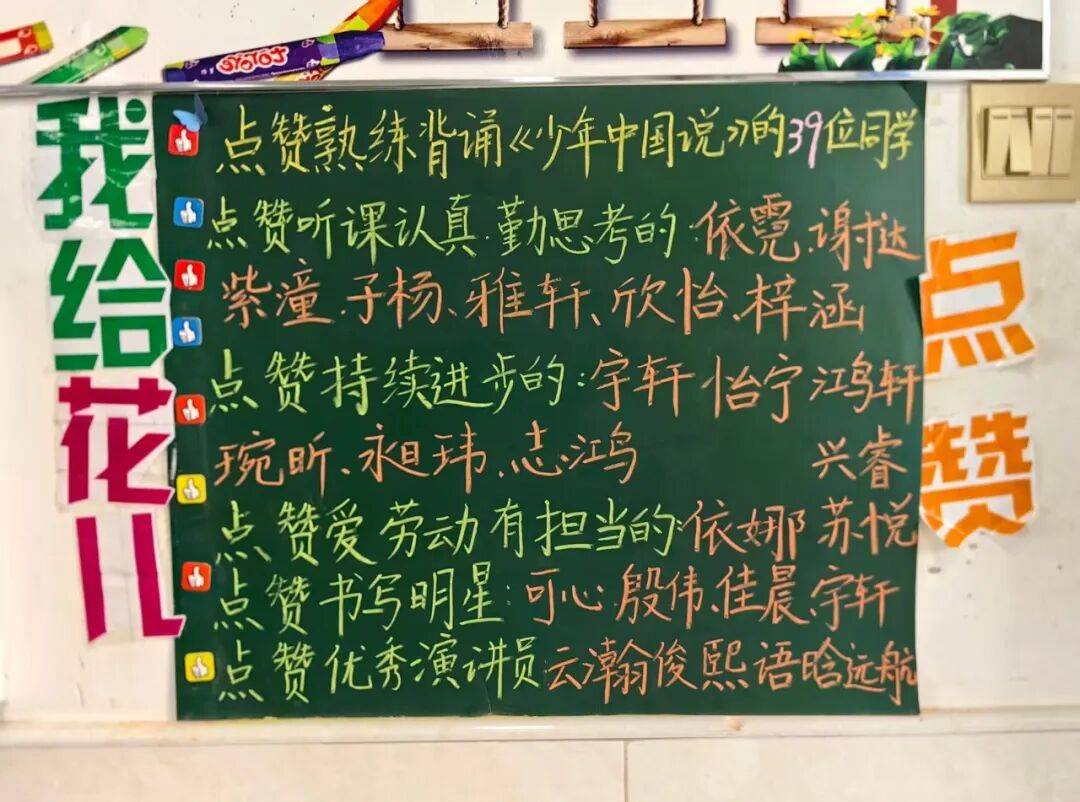 我给花儿
点赞
点赞熟练背诵《少年中国说》的39位同学
点赞听课认真.勤思考的:依霓、谢达
紫潼.子杨、雅轩、欣怡、梓涵
点赞持续进步的:宇轩 怡宁 鸿轩
琬昕、永玮、志鸿 兴睿
点赞爱劳动有担当的:依娜 苏悦
点赞书写明星:可心.殷伟、佳晨、宇轩
点赞优秀演讲员:云瀚俊熙语晗远航